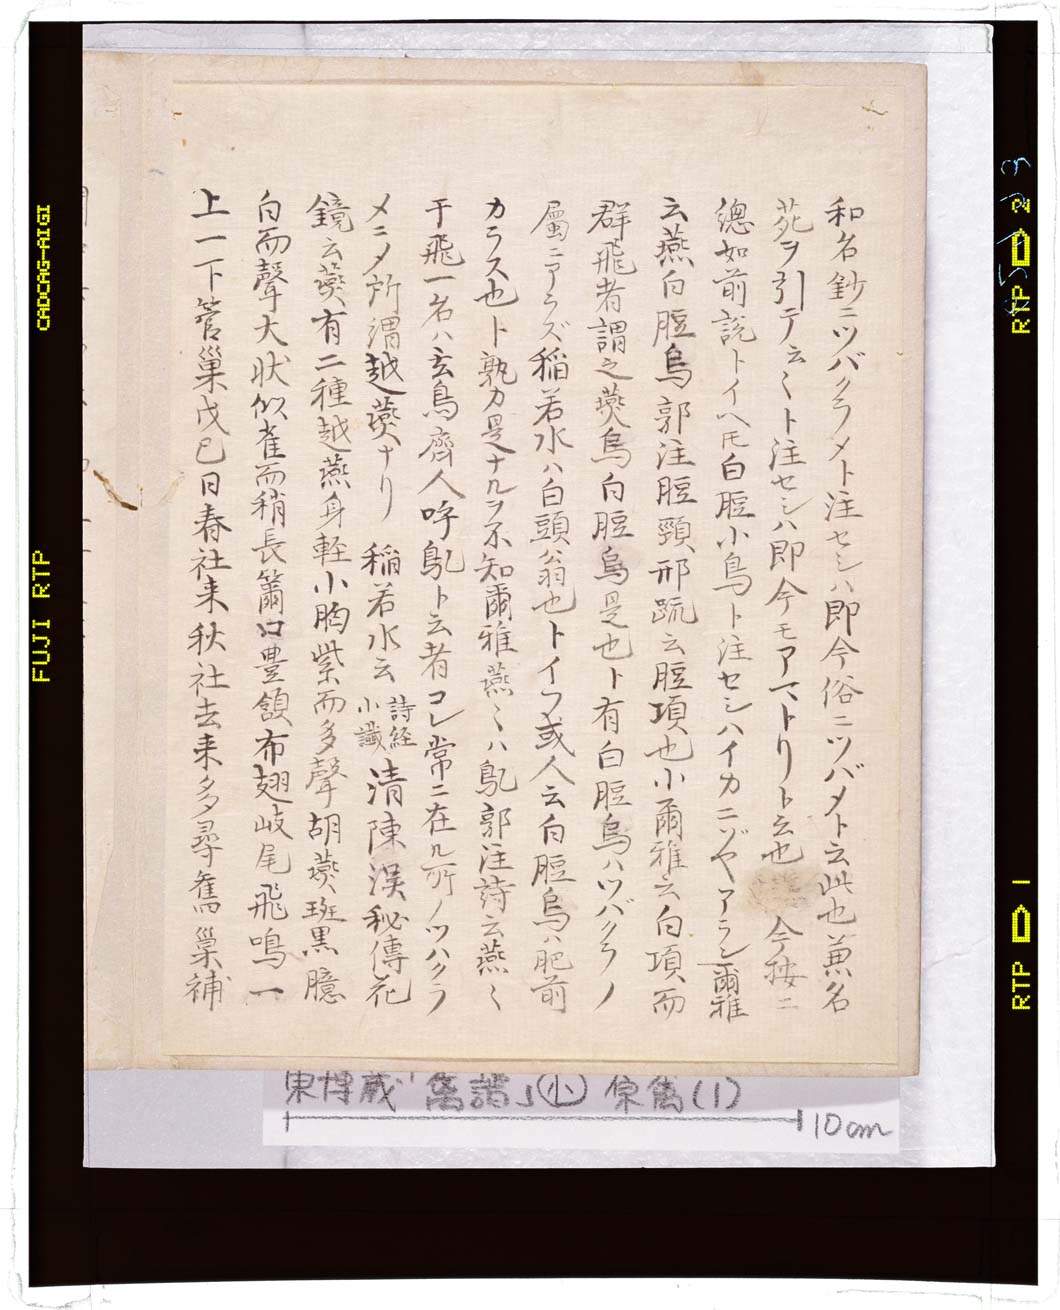 和名鈔ニツバクラメト注セシハ即今俗ニツバメト云此也兼名
苑ヲ引テ云〻ト注セシハ即今モアマトリト云也 今按ニ
總如前説トイヘ𪜈白脰小鳥ト注セシハイカニゾヤアラン爾雅
云燕白脰烏郭注脰頸邢疏云脰項也小爾雅云白項而
群飛者謂之燕烏白脰烏是也ト有白脰烏ハツバクラノ
屬ニアラズ稲若水ハ白頭翁也トイフ或人云白脰烏ハ肥前
カラス也ト孰カ是ナルヲ不知爾雅燕〻ハ鳦郭注詩云燕〻
于飛一名ハ玄鳥齊人呼鳦ト云者コレ常ニ在ル所ノツハクラ
メニメ所謂越燕ナリ 稲若水云 詩経小識 清陳淏秘傳花
鏡云燕有二種越燕身輕小胸紫而多聲胡燕斑黒臆
白而聲大状似雀而稍長籋口豊頷布翅岐尾飛鳴一
上一下管巣戊巳日春社来秋社去来多尋舊巣補
東博蔵「禽譜」小 原禽(1)
10cm
FUJI RTP
CADCAG-AIGI
RTP 2
RTP 1